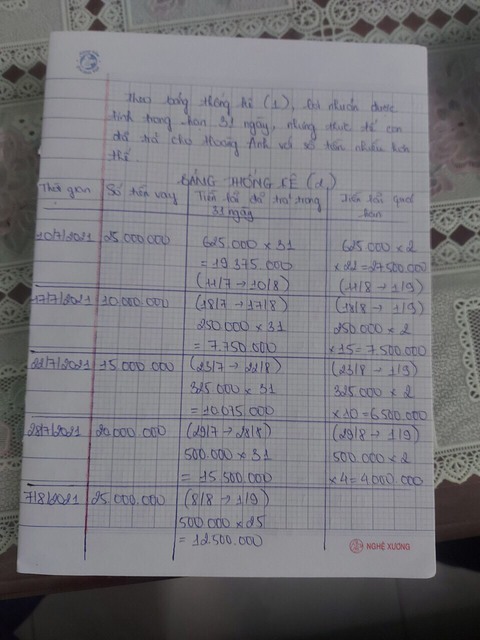 Theo bảng thống kê (1), lợi nhuận được
tính trong hạn 31 ngày, nhưng thực tế con
đã trả cho thương Anh với số tiền nhiều hơn
thế
BẢNG THỐNG KÊ (2)
Thời gian Số tiền vay Tiền lời đã trả trong 31 ngày Tiền lời quá hạn
10/7/2021 25.000.000 625.000 x 31 625.000 x 2
= 19.375.000 x 21 = 27.500.000
(11/7 → 10/8) (11/8 → 1/9)
17/7/2021 10.000.000 (18/7 → 17/8) (18/8 → 1/9)
250.000 x 31 250.000 x 2
= 7.750.000 x 15 = 7.500.000
22/7/2021 15.000.000 (23/7 → 22/8) (23/8 → 1/9)
325.000 x 31 325.000 x 2
= 10.075.000 x 10 = 6.500.000
28/7/2021 20.000.000 (29/7 → 28/8) (29/8 → 1/9)
500.000 x 31 500.000 x 2
= 15.500.000 x 4 = 4.000.000
7/8/2021 25.000.000 (8/8 → 1/9)
500.000 x 25
= 12.500.000
NGHỆ XƯƠNG